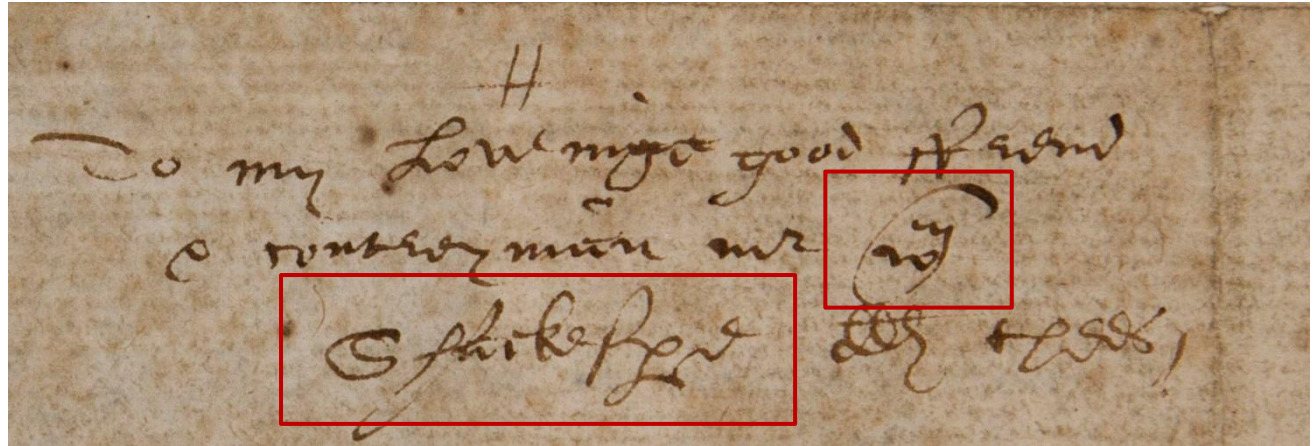 H
To my Loveinge good ffrend
& contreyman mr wm
Shackespere thees